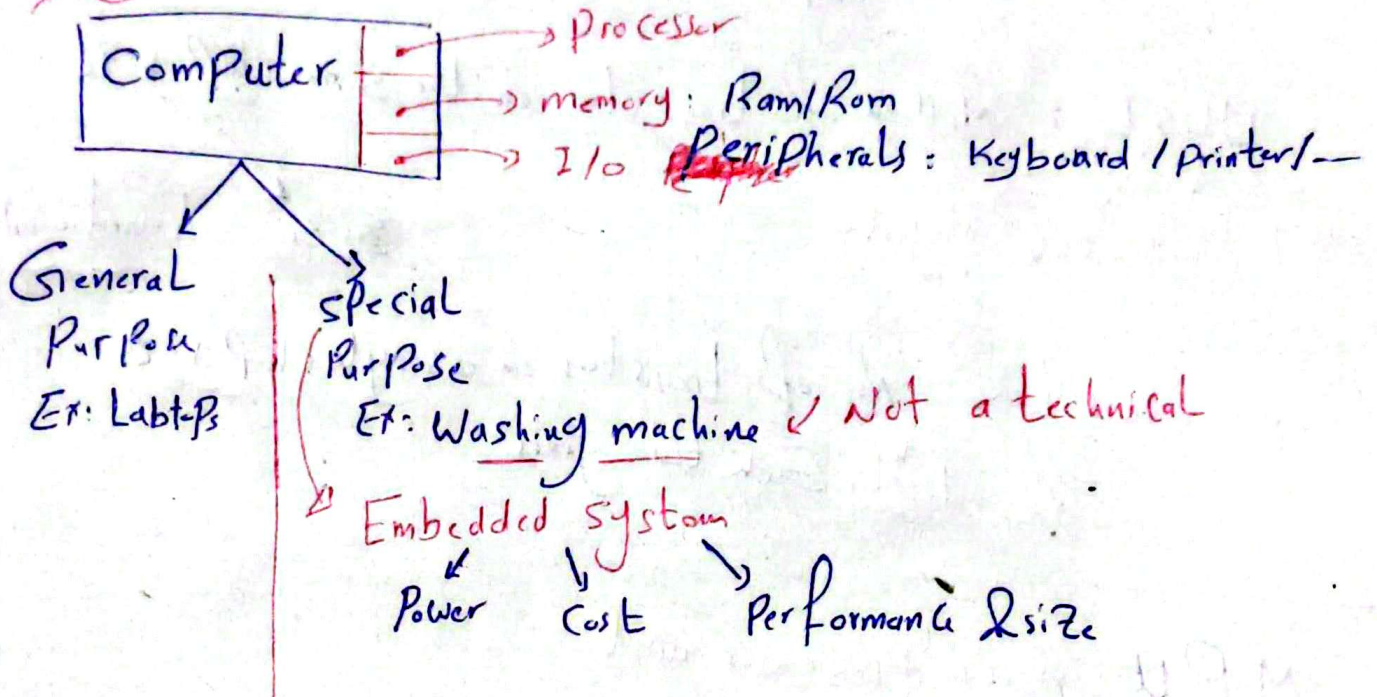 Computer
Processor
memory : Ram/Rom
I/o Peripherals : Keyboard / printer/ —
General
Purpose
Ex: Labtops
special
Purpose
Ex: Washing machine
Not a technical
Embedded system
Power
Cost
Performance & size